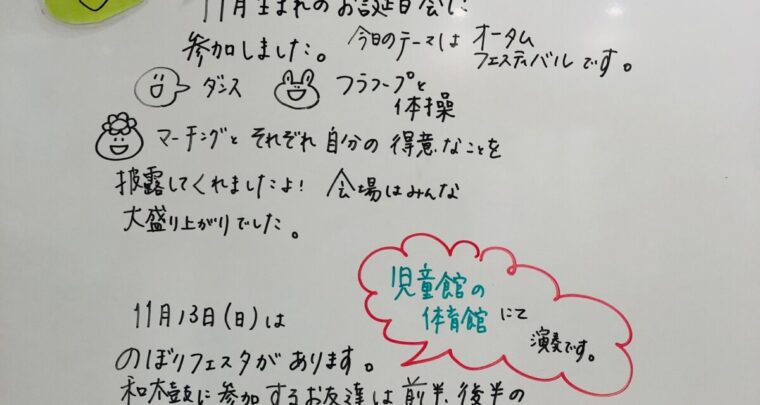 11月生まれのお誕生日会に
参加しました。 今日のテーマは オータム
フェスティバルです。
ダンス フラフープと
体操
マーチングと それぞれ 自分の 得意なことを
披露してくれましたよ! 会場はみんな
大盛り上がりでした。
児童館の
体育館 にて
演奏です。
11月13日(日)は
のぼりフェスタがあります。
和太鼓に参加するお友達は 前半、後半の